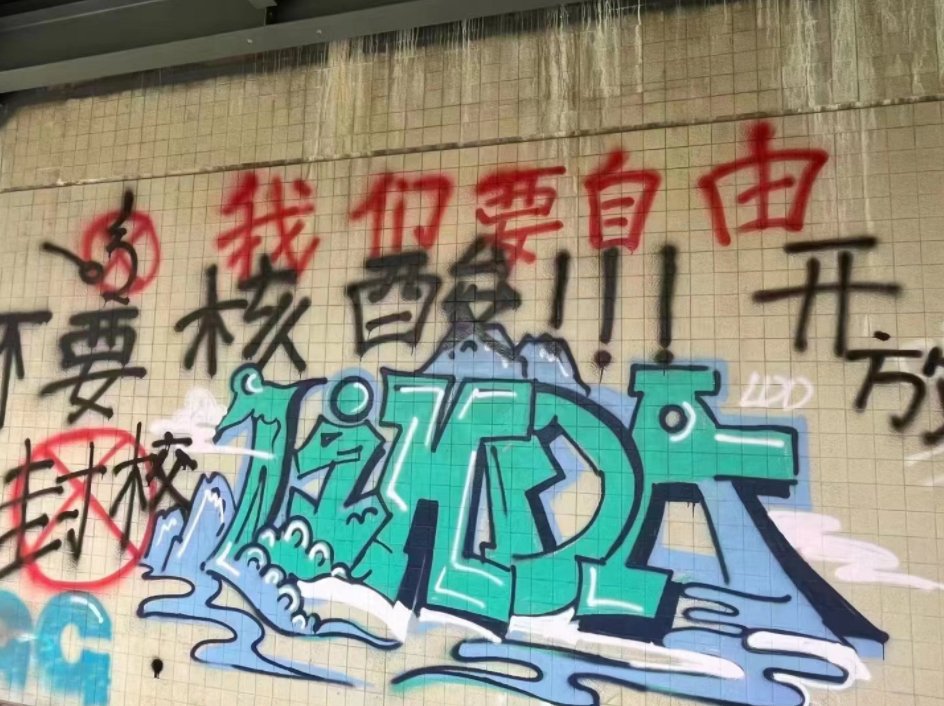 我们要自由
不要核酸!!! 开放
封校
LiMDA
LDO
GG